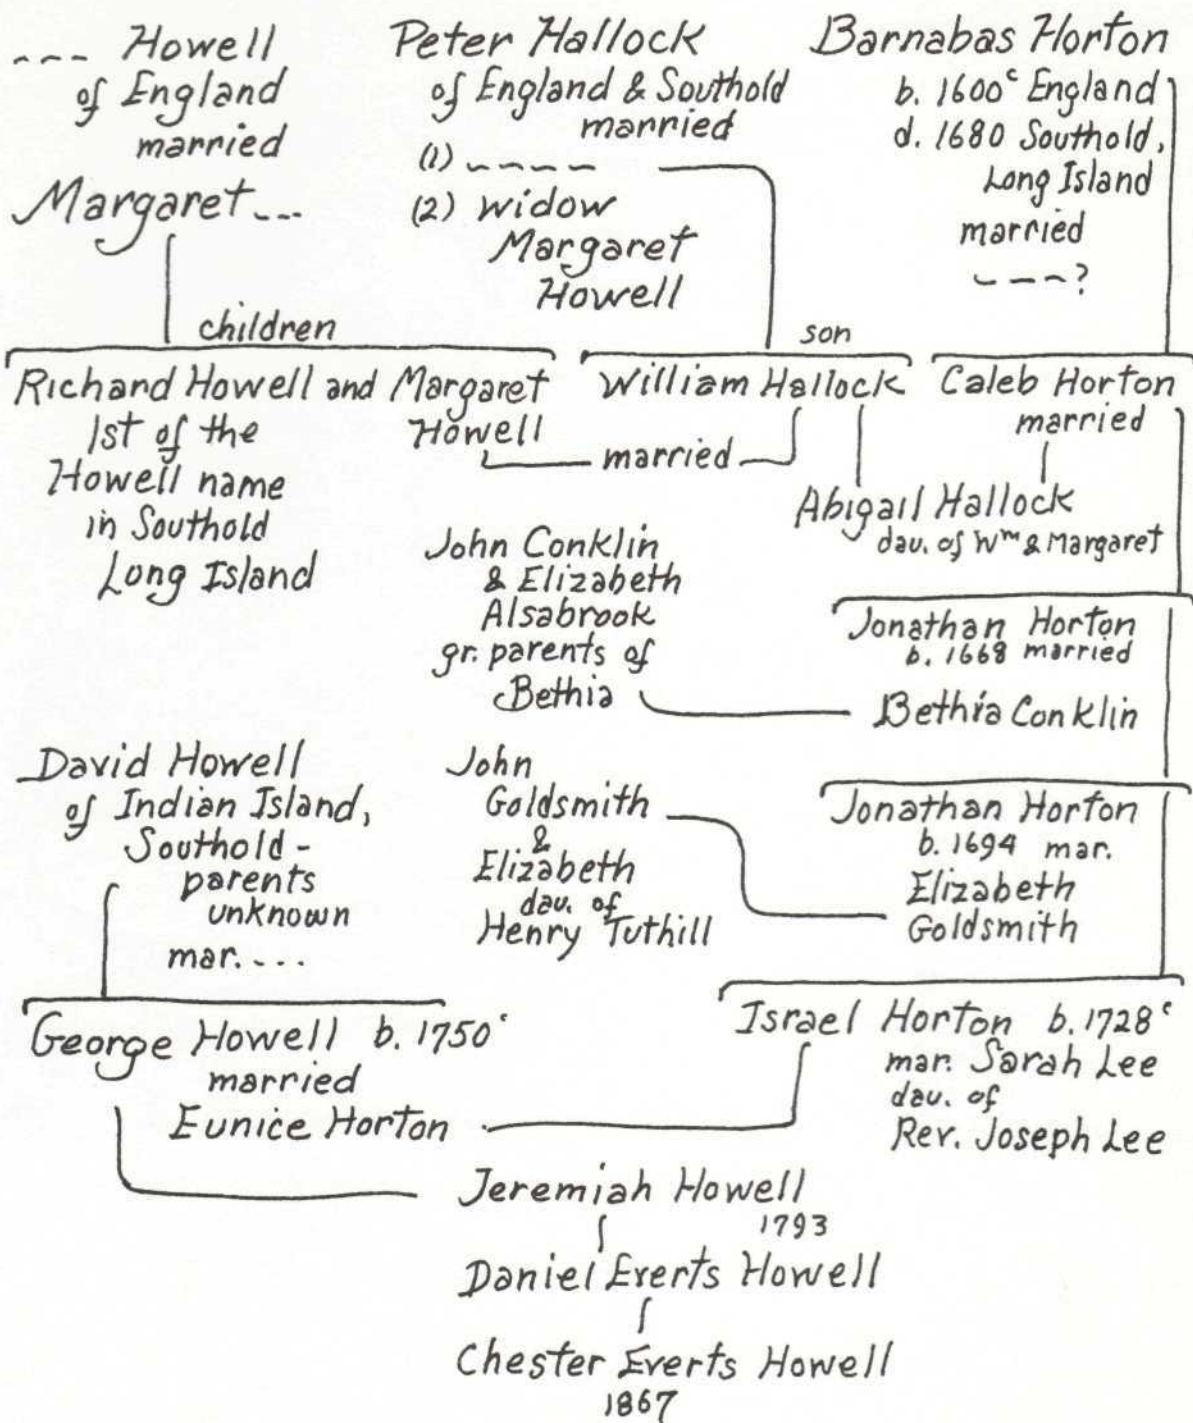 --- Howell
of England
married
Margaret ---
Peter Hallock
of England & Southold
married
(1) ----
(2) widow
Margaret
Howell
Barnabas Horton
b. 1600ᶜ England
d. 1680 Southold,
Long Island
married
---?
children
Richard Howell and Margaret
Howell
1st of the
Howell name
in Southold
Long Island
son
William Hallock
married
Caleb Horton
married
Abigail Hallock
dau. of Wᵐ & Margaret
John Conklin
& Elizabeth
Alsabrook
gr. parents of
Bethia
Jonathan Horton
b. 1668 married
Bethia Conklin
David Howell
of Indian Island,
Southold -
parents
unknown
mar. ---
John
Goldsmith
&
Elizabeth
dau. of
Henry Tuthill
Jonathan Horton
b. 1694 mar.
Elizabeth
Goldsmith
George Howell b. 1750ᶜ
married
Eunice Horton
Israel Horton b. 1728ᶜ
mar. Sarah Lee
dau. of
Rev. Joseph Lee
Jeremiah Howell
1793
Daniel Everts Howell
Chester Everts Howell
1867